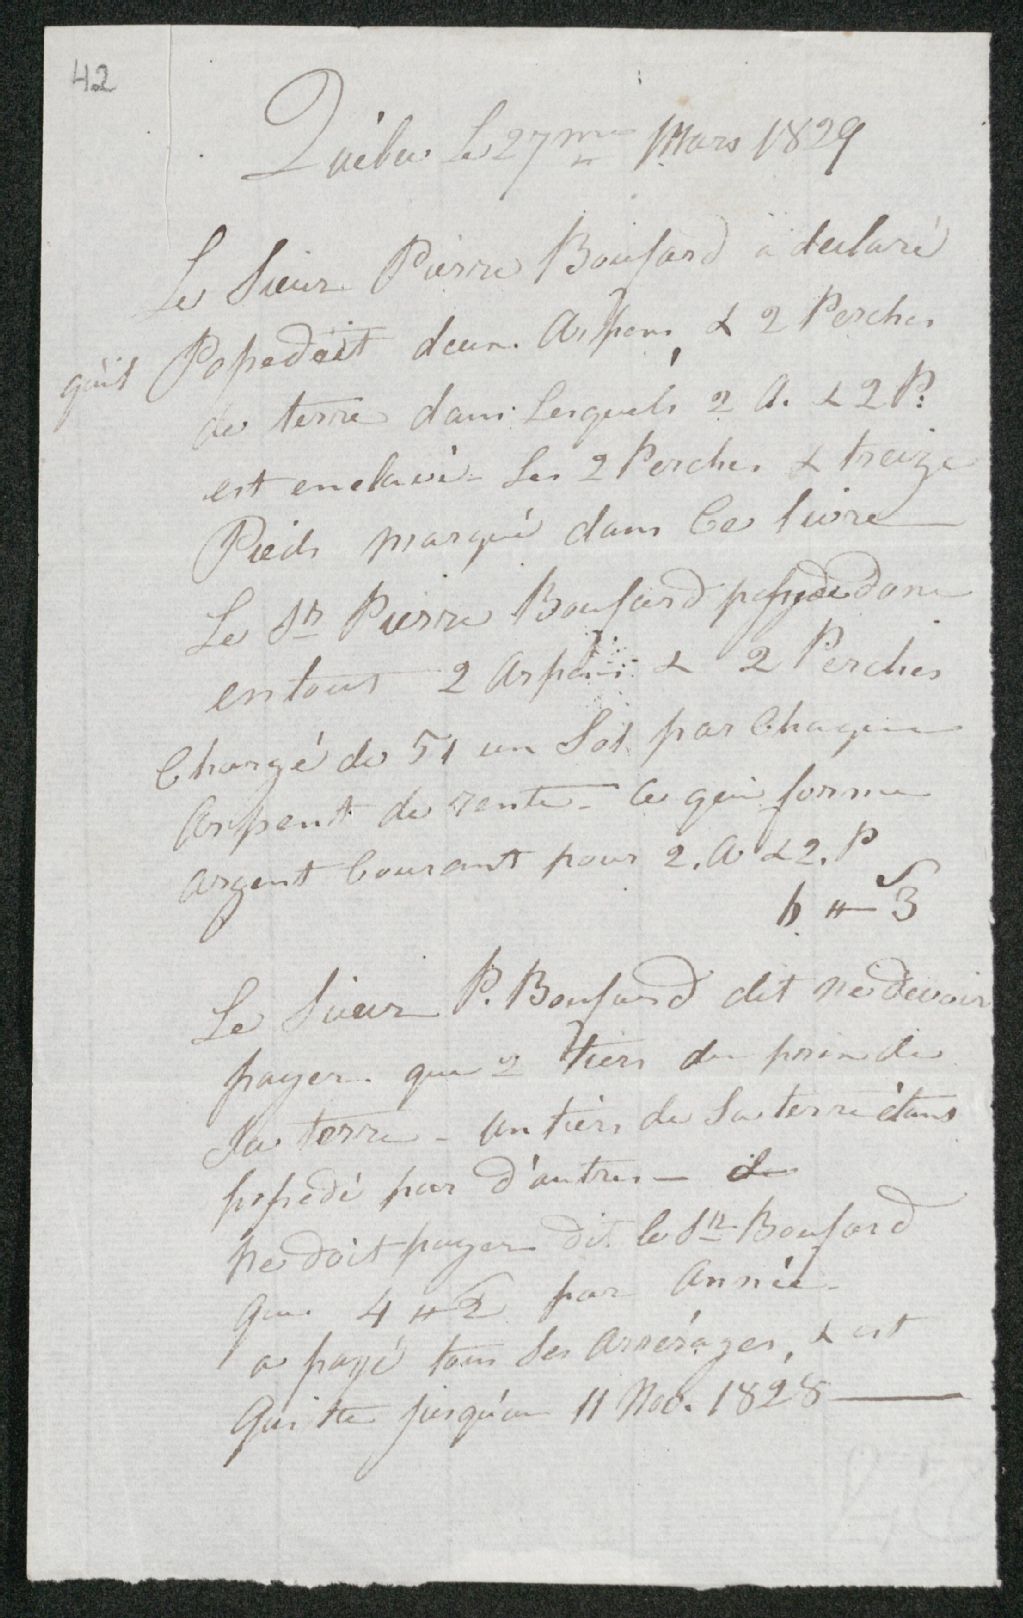 42
Québec le 27me Mars 1829
Le Sieur Pierre Boufard a declaré
qu'il Possedoit deux Arpens & 2 Perches
de terre dans Lesquels 2 A. & 2 P.
est enclavé Les 2 Perches & treize
Pieds marqué dans Ce livre
Le Sr Pierre Boufard possede donc
en tout 2 Arpens & 2 Perches
Chargé de 51 un Sol par Chaque
Arpent de rente - Ce qui forme
Argent Courant pour 2. A & 2. P
" 3
Le Sieur P. Boufard dit ne devoir
payer que 2 tiers du prix de
Sa terre - un tiers de Sa terre étans
possedé par d'autres -
ne doit payer dit le Sr Boufard
que 4 " 2 par Année
a payé tous Ses Arrérages, & est
Quitte jusqu'au 11 Nov. 1828